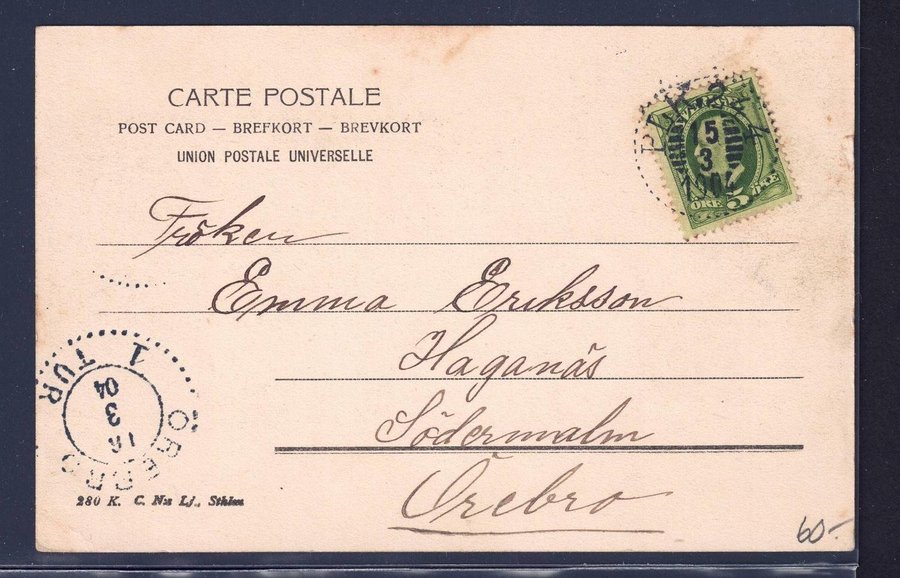 CARTE POSTALE
POST CARD — BREFKORT — BREVKORT
UNION POSTALE UNIVERSELLE
15
3
1904
ÖRE 5 ÖRE
Fröken
Emma Eriksson
Haganäs
Södermalm
Örebro
1 TUR
04
3
ÖREBRO
280 K. C. Nn Lj., Sthlm
60-